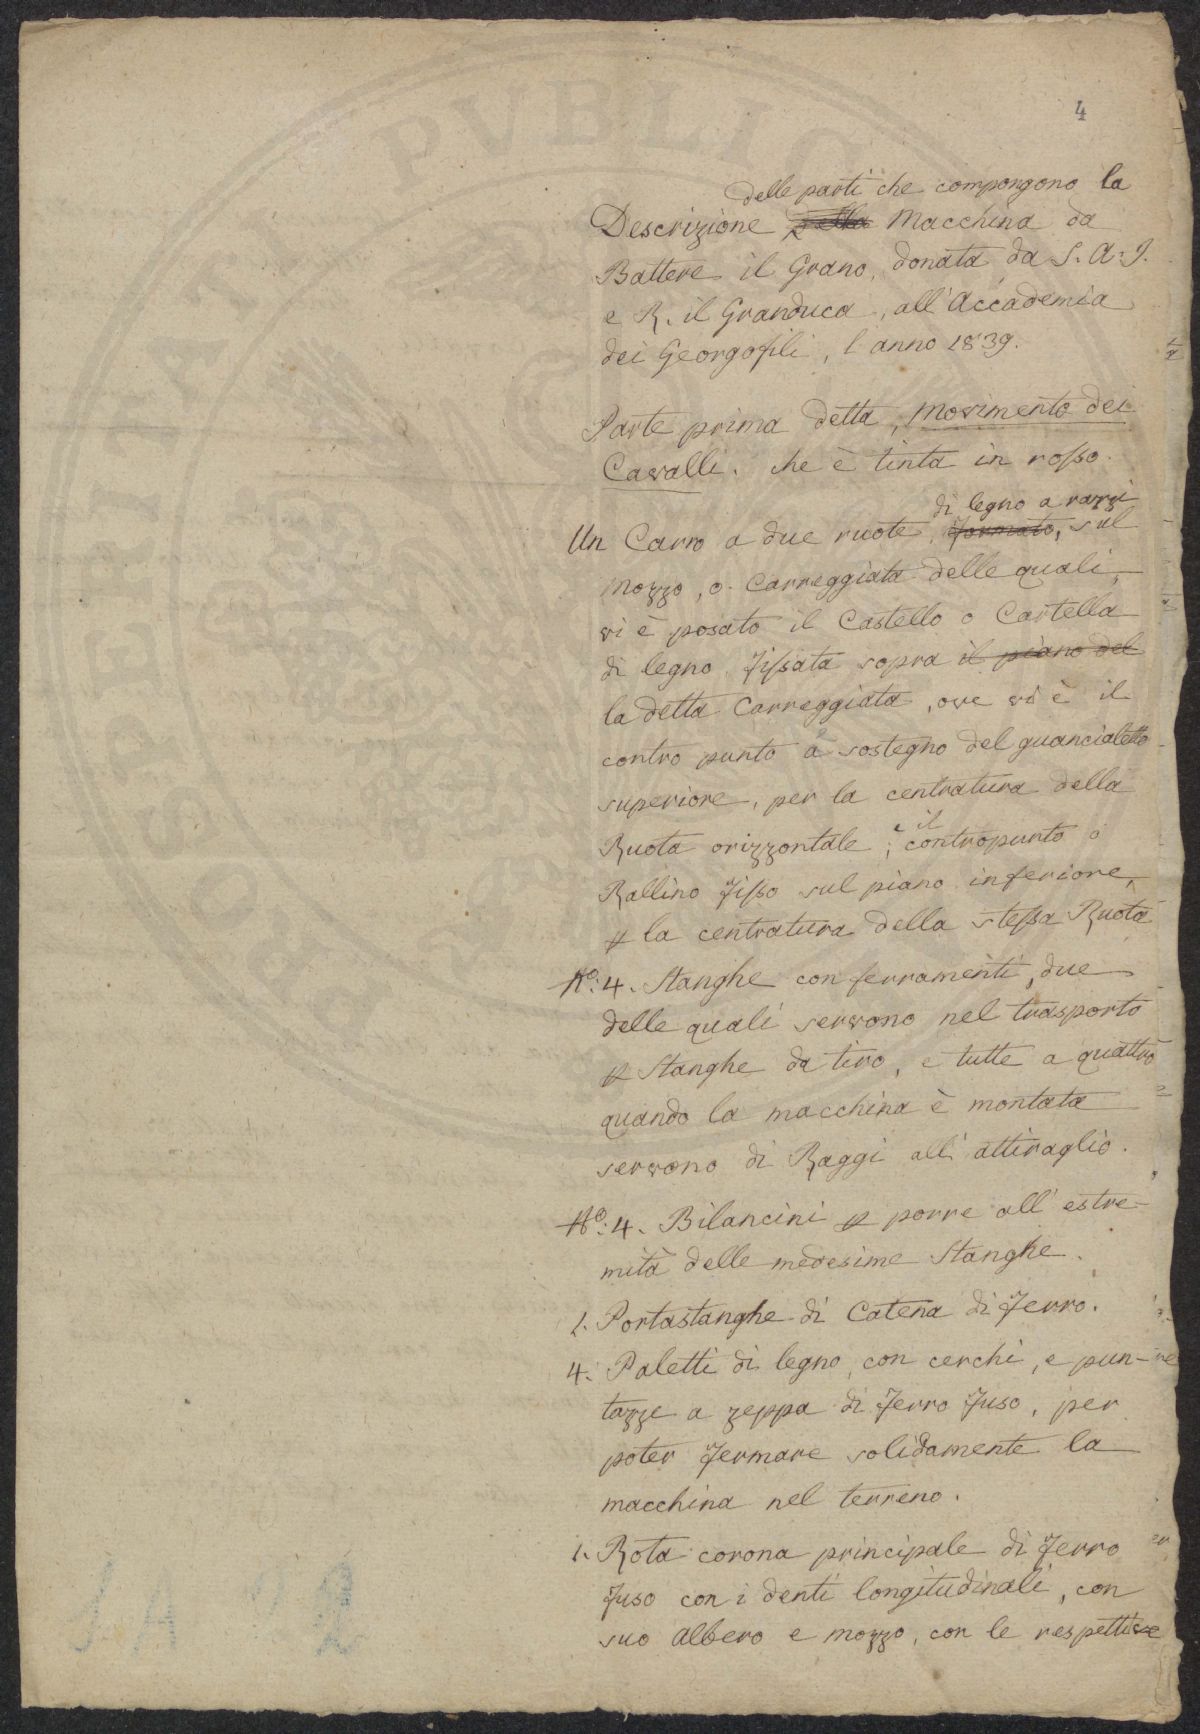 4
delle parti che compongono la
Descrizione della Macchina da
Battere il Grano, donata da S. A. I.
e R. il Granduca, all'Accademia
dei Georgofili, l'anno 1839.
Parte prima detta, Movimento dei
Cavalli. che è tinta in rosso.
di legno a razzi
Un Carro a due ruote, formato, sul
mozzo, o Carreggiata delle quali,
vi è posato il Castello o Cartella
di legno fissata sopra il piano del
la detta Carreggiata, ove vi è il
contro punto a sostegno del guancialetto
superiore, per la centratura della
e il
Ruota orizzontale, contropunto o
Rallino fisso sul piano inferiore,
p la centratura della stessa Ruota
No: 4. Stanghe con ferramenti, due
delle quali servono nel trasporto
p Stanghe da tiro, e tutte a quattro
quando la macchina è montata
servono di Raggi all'attiraglio.
No: 4. Bilancini p porre all'estre-
mità delle medesime Stanghe.
1. Portastanghe di Catena di ferro.
4. Paletti di legno, con cerchi, e pun-
tazze a zeppa di ferro fuso, per
poter fermare solidamente la
macchina nel terreno.
1. Rota corona principale di ferro
fuso con i denti longitudinali, con
suo albero e mozzo, con le respettive
PVBLIC
1A 22